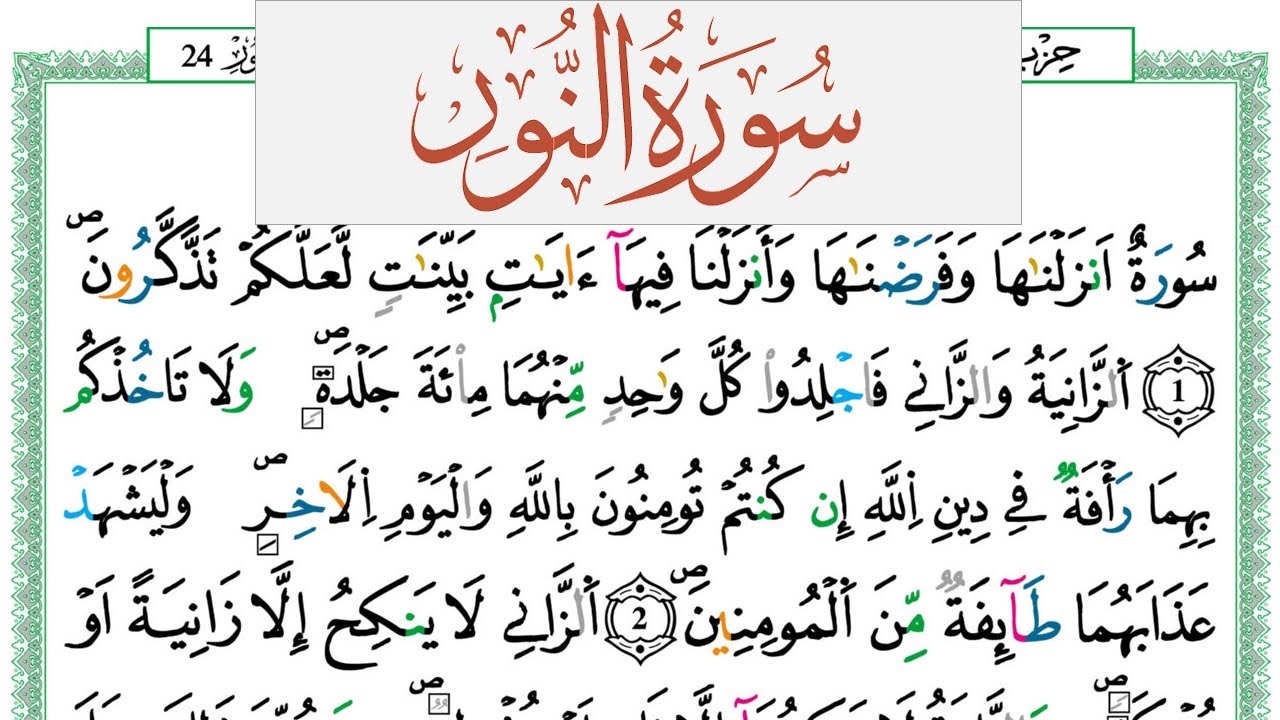 حِزْب
24
سُورَةُ النُّورِ
سُورَةٌ اَنزَلْنَٰهَا وَفَرَضْنَٰهَا وَأَنزَلْنَا فِيهَآ ءَايَٰتِۭ بَيِّنَٰتٖ لَّعَلَّكُمْ تَذَّكَّرُونَۖ
1 اَ۬لزَّانِيَةُ وَالزَّانِے فَاجْلِدُواْ كُلَّ وَٰحِدٖ مِّنْهُمَا مِاْئَةَ جَلْدَةٖۖ وَلَا تَاخُذْكُم
بِهِمَا رَأْفَةٞ فِے دِينِ اِ۬للَّهِ إِن كُنتُمْ تُومِنُونَ بِاللَّهِ وَالْيَوْمِ اِ۬لَاخِرِۖ وَلْيَشْهَدْ
عَذَابَهُمَا طَآئِفَةٞ مِّنَ اَ۬لْمُومِنِينَۖ 2 اَ۬لزَّانِے لَا يَنكِحُ إِلَّا زَانِيَةً اَوْ